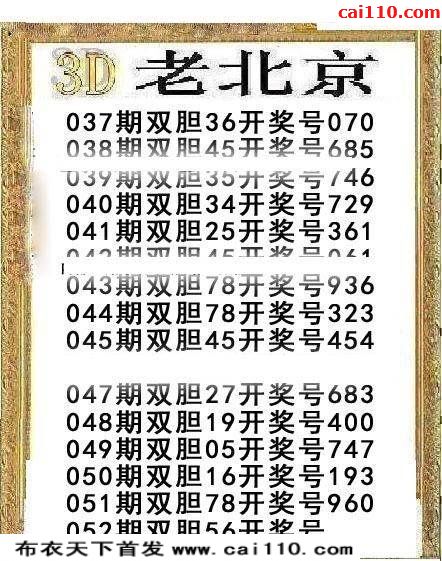 cai110.com
3D 老北京
037期双胆36开奖号070
038期双胆45开奖号685
039期双胆35开奖号746
040期双胆34开奖号729
041期双胆25开奖号361
期双胆45开奖号061
043期双胆78开奖号936
044期双胆78开奖号323
045期双胆45开奖号454
047期双胆27开奖号683
048期双胆19开奖号400
049期双胆05开奖号747
050期双胆16开奖号193
051期双胆78开奖号960
052期双胆56开奖号
布衣天下首发 www.cai110.com